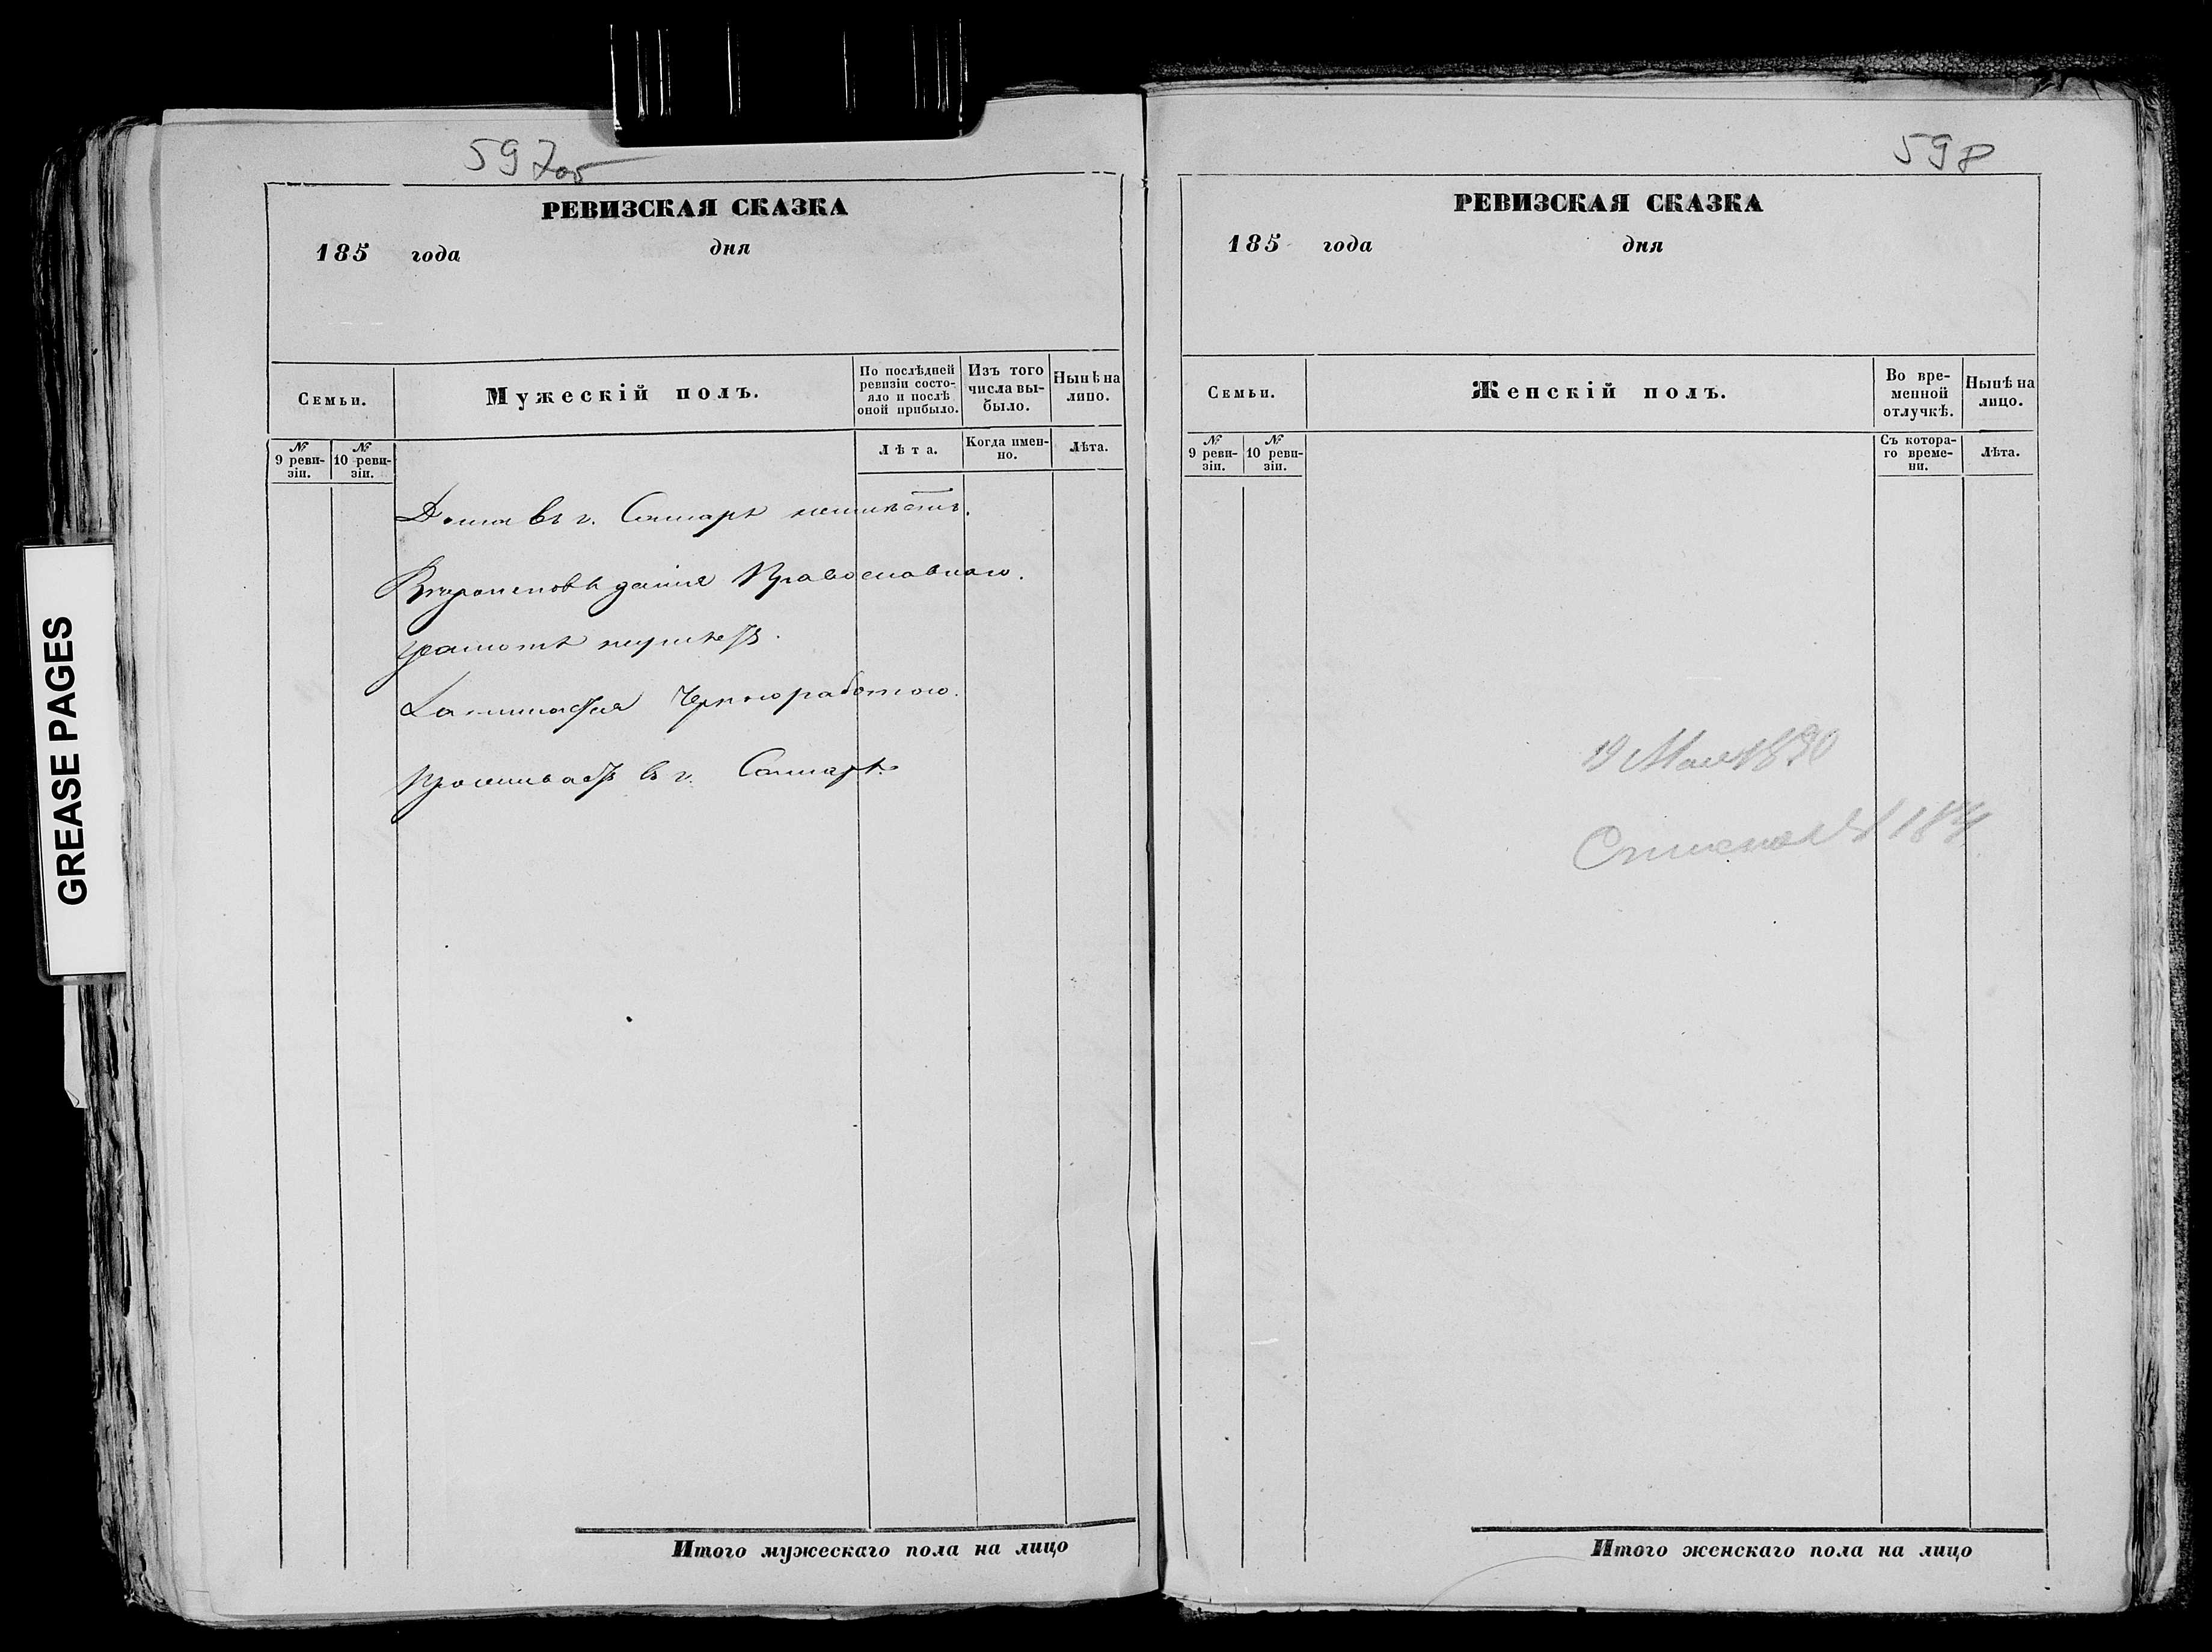 597об
РЕВИЗСКАЯ СКАЗКА
185 года дня
Семьи.
Мужескій полъ.
По послѣдней ревизіи состо-
яло и послѣ оной прибыло.
Изъ того числа вы-
было.
Нынѣ на лицо.
№ 9 реви-
зіи.
№ 10 реви-
зіи.
Лѣта.
Когда имен-
но.
Лѣта.
Дома въ г. Самарѣ неимѣетъ.
Вѣроисповѣданія Православнаго.
грамотѣ неумѣетъ.
Занимается Черноработою.
Проживаетъ въ г. Самарѣ.
Итого мужескаго пола на лицо
GREASE PAGES
598
РЕВИЗСКАЯ СКАЗКА
185 года дня
Семьи.
Женскій полъ.
Во вре-
менной
отлучкѣ.
Нынѣ на
лицо.
№ 9 реви-
зіи.
№ 10 реви-
зіи.
Съ котора-
го време-
ни.
Лѣта.
19 Мая 1890
Итого женскаго пола на лицо